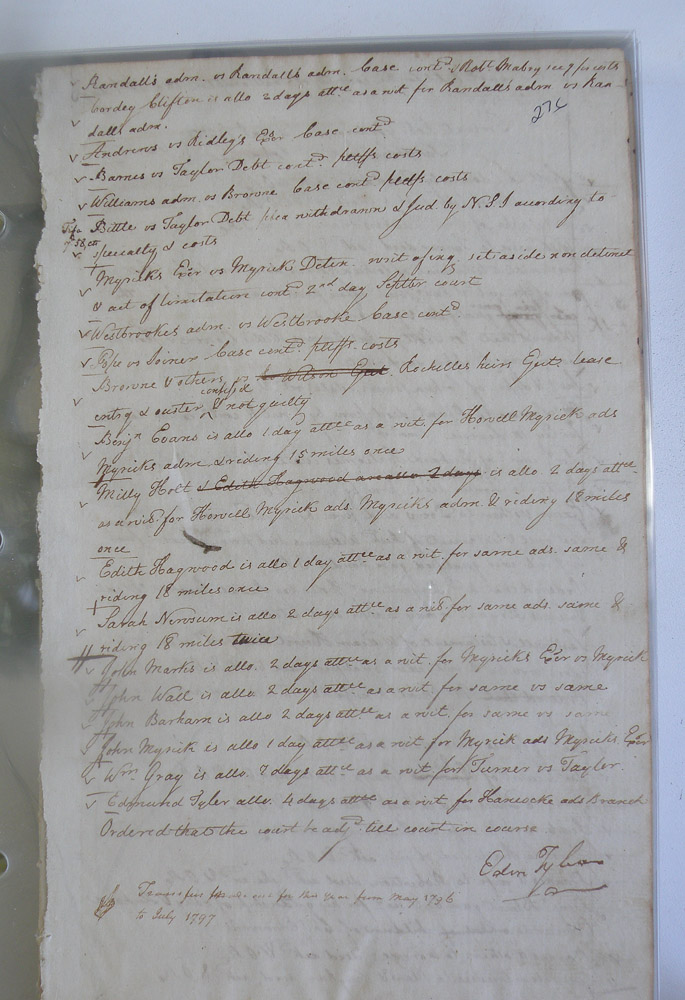 Randall's adm. vs Randalls adm. Case contd & Robt Mabry see 9 for costs
Cordey Clifton is allo 2 days attce as a wit for Randalls adm vs Ran
dalls adm.
276
Andrews vs Ridley's Exor Case contd
Barnes vs Taylor Debt contd pltffs costs
Williams adm. vs Browne Case contd pltffs costs
Bittle vs Taylor Debt plea withdrawn & Jud by N.S I according to
specialty & costs
Myricks Exor vs Myrick Detin. writ of inq set aside non detinet
& act of limitation contd 2nd day Septbr court
Westbrookes adm. vs Westbrooke Case contd
Pope vs Joiner Case contd pltffs costs
Browne & others vs Wilson Ejet. Rochelles heirs Ejet lease
entry & ouster confessed & not guilty
Benjn Evans is allo 1 day attce as a wit. for Howell Myrick ads
Myricks adm & riding 15 miles once
Milly Holt & Edith Hagwood are allo 2 days is allo 2 days attce
as a wit for Howell Myrick ads. Myricks adm. & riding 18 miles
once
Edith Hagwood is allo 1 day attce as a wit. for same ads. same &
riding 18 miles once
Sarah Newsum is allo 2 days attce as a wit for same ads. same &
riding 18 miles twice
John Marks is allo. 2 days attce as a wit. for Myricks Exor vs Myrick
John Wall is allo 2 days attce as a wit. for same vs same
John Barham is allo 2 days attce as a wit. for same vs same
John Myrick is allo 1 day attce as a wit for Myrick ads Myricks Exor
Wm Gray is allo. 7 days attce as a wit for Turner vs Taylor.
Edmund Tyler allo. 4 days attce as a wit for Hancocke ads Branch
Ordered that the court be adjd till court in course
Edin Tyler
Transfers for this year from May 1796
to July 1797